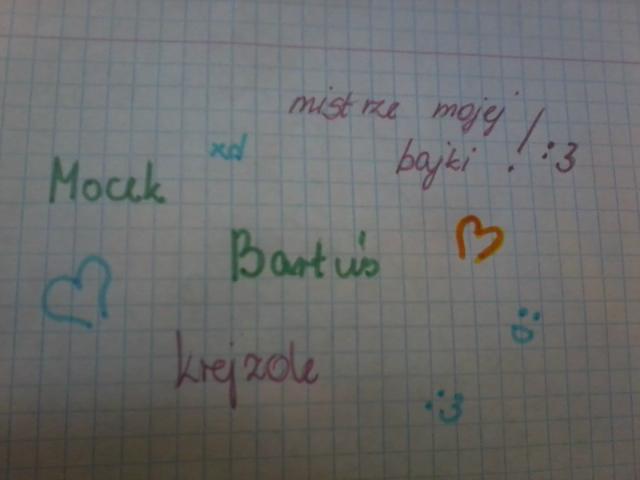 mistrze mojej
bajki ! :3
xd
Mocek
Bartuś
krejzole
:3